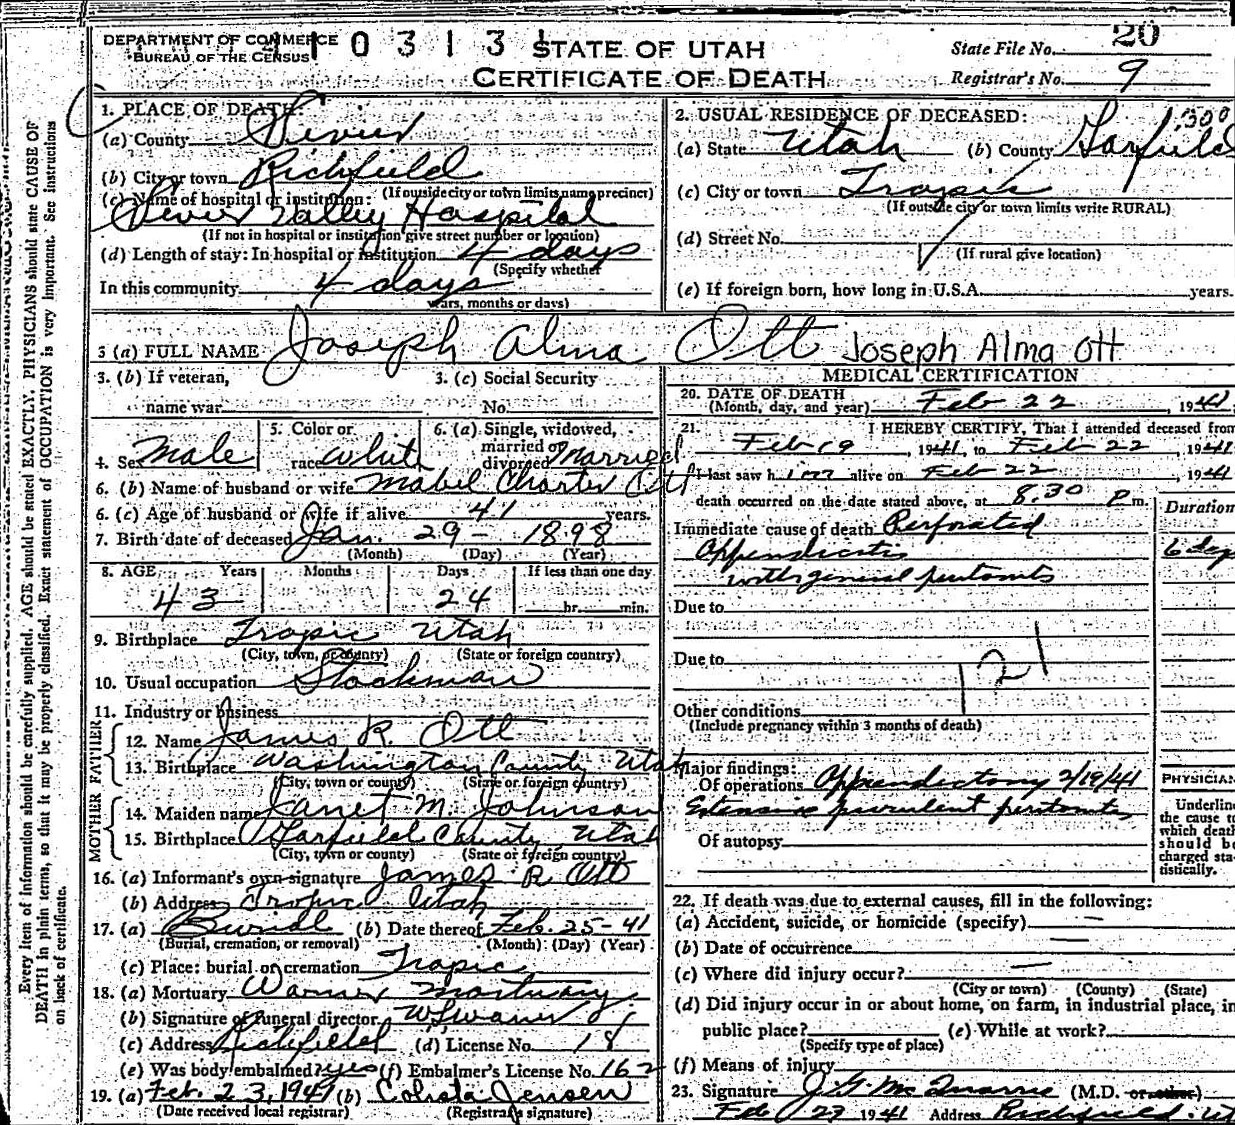 DEPARTMENT OF COMMERCE
BUREAU OF THE CENSUS
1 0 3 1 3 1
STATE OF UTAH
CERTIFICATE OF DEATH
State File No. 20
Registrar's No. 9
Every item of information should be carefully supplied. AGE should be stated EXACTLY. PHYSICIANS should state CAUSE OF
DEATH in plain terms, so that it may be properly classified. Exact statement of OCCUPATION is very important. See instructions
on back of certificate.
1. PLACE OF DEATH:
(a) County Sevier
(b) City or town Richfield
(If outside city or town limits name precinct)
(c) Name of hospital or institution:
Sevier Valley Hospital
(If not in hospital or institution give street number or location)
(d) Length of stay: In hospital or institution 4 days
(Specify whether
In this community 4 days
years, months or days)
2. USUAL RESIDENCE OF DECEASED: 300
(a) State Utah (b) County Garfield
(c) City or town Tropic
(If outside city or town limits write RURAL)
(d) Street No.
(If rural give location)
(e) If foreign born, how long in U.S.A. years.
3 (a) FULL NAME Joseph Alma Ott Joseph Alma Ott
3. (b) If veteran, 3. (c) Social Security
name war No.
4. Sex Male 5. Color or race White 6. (a) Single, widowed, married or divorced Married
6. (b) Name of husband or wife Mabel Charter Ott
6. (c) Age of husband or wife if alive 41 years.
7. Birth date of deceased Jan. 29 - 1898
(Month) (Day) (Year)
8. AGE Years Months Days If less than one day
43 24 hr. min.
9. Birthplace Tropic Utah
(City, town, or county) (State or foreign country)
10. Usual occupation Stockman
11. Industry or business
FATHER
12. Name James R. Ott
13. Birthplace Washington County Utah
(City, town or county) (State or foreign country)
MOTHER
14. Maiden name Janet M. Johnson
15. Birthplace Garfield County, Utah
(City, town or county) (State or foreign country)
16. (a) Informant's own signature James R Ott
(b) Address Tropic Utah
17. (a) Burial (b) Date thereof Feb. 25-41
(Burial, cremation, or removal) (Month) (Day) (Year)
(c) Place: burial or cremation Tropic
18. (a) Mortuary Warner Mortuary
(b) Signature of funeral director
(c) Address Richfield (d) License No. 18
(e) Was body embalmed? yes (f) Embalmer's License No. 162
19. (a) Feb. 23, 1941 (b) Jensen
(Date received local registrar) (Registrar's signature)
MEDICAL CERTIFICATION
20. DATE OF DEATH
(Month, day, and year) Feb 22, 1941
21. I HEREBY CERTIFY, That I attended deceased from
Feb 19, 1941, to Feb 22, 1941
I last saw him alive on Feb 22, 1941
death occurred on the date stated above, at 8.30 P m.
Duration
Immediate cause of death Perforated
Appendicitis 6 days
with general peritonitis
Due to
Due to
121
Other conditions
(Include pregnancy within 3 months of death)
Major findings:
Of operations Appendectomy 2/19/41
Extensive purulent peritonitis
Of autopsy
PHYSICIAN
Underline
the cause to
which death
should be
charged sta-
tistically.
22. If death was due to external causes, fill in the following:
(a) Accident, suicide, or homicide (specify) —
(b) Date of occurrence —
(c) Where did injury occur? —
(City or town) (County) (State)
(d) Did injury occur in or about home, on farm, in industrial place, in
public place? (e) While at work?
(Specify type of place)
(f) Means of injury
23. Signature J. G. McQuarrie (M.D. or other)
Feb 23 1941 Address Richfield. Ut